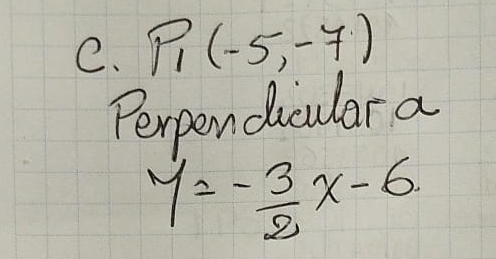 C. P₁ (-5,-7)
Perpendicular a
Y = - 3/2 x - 6.